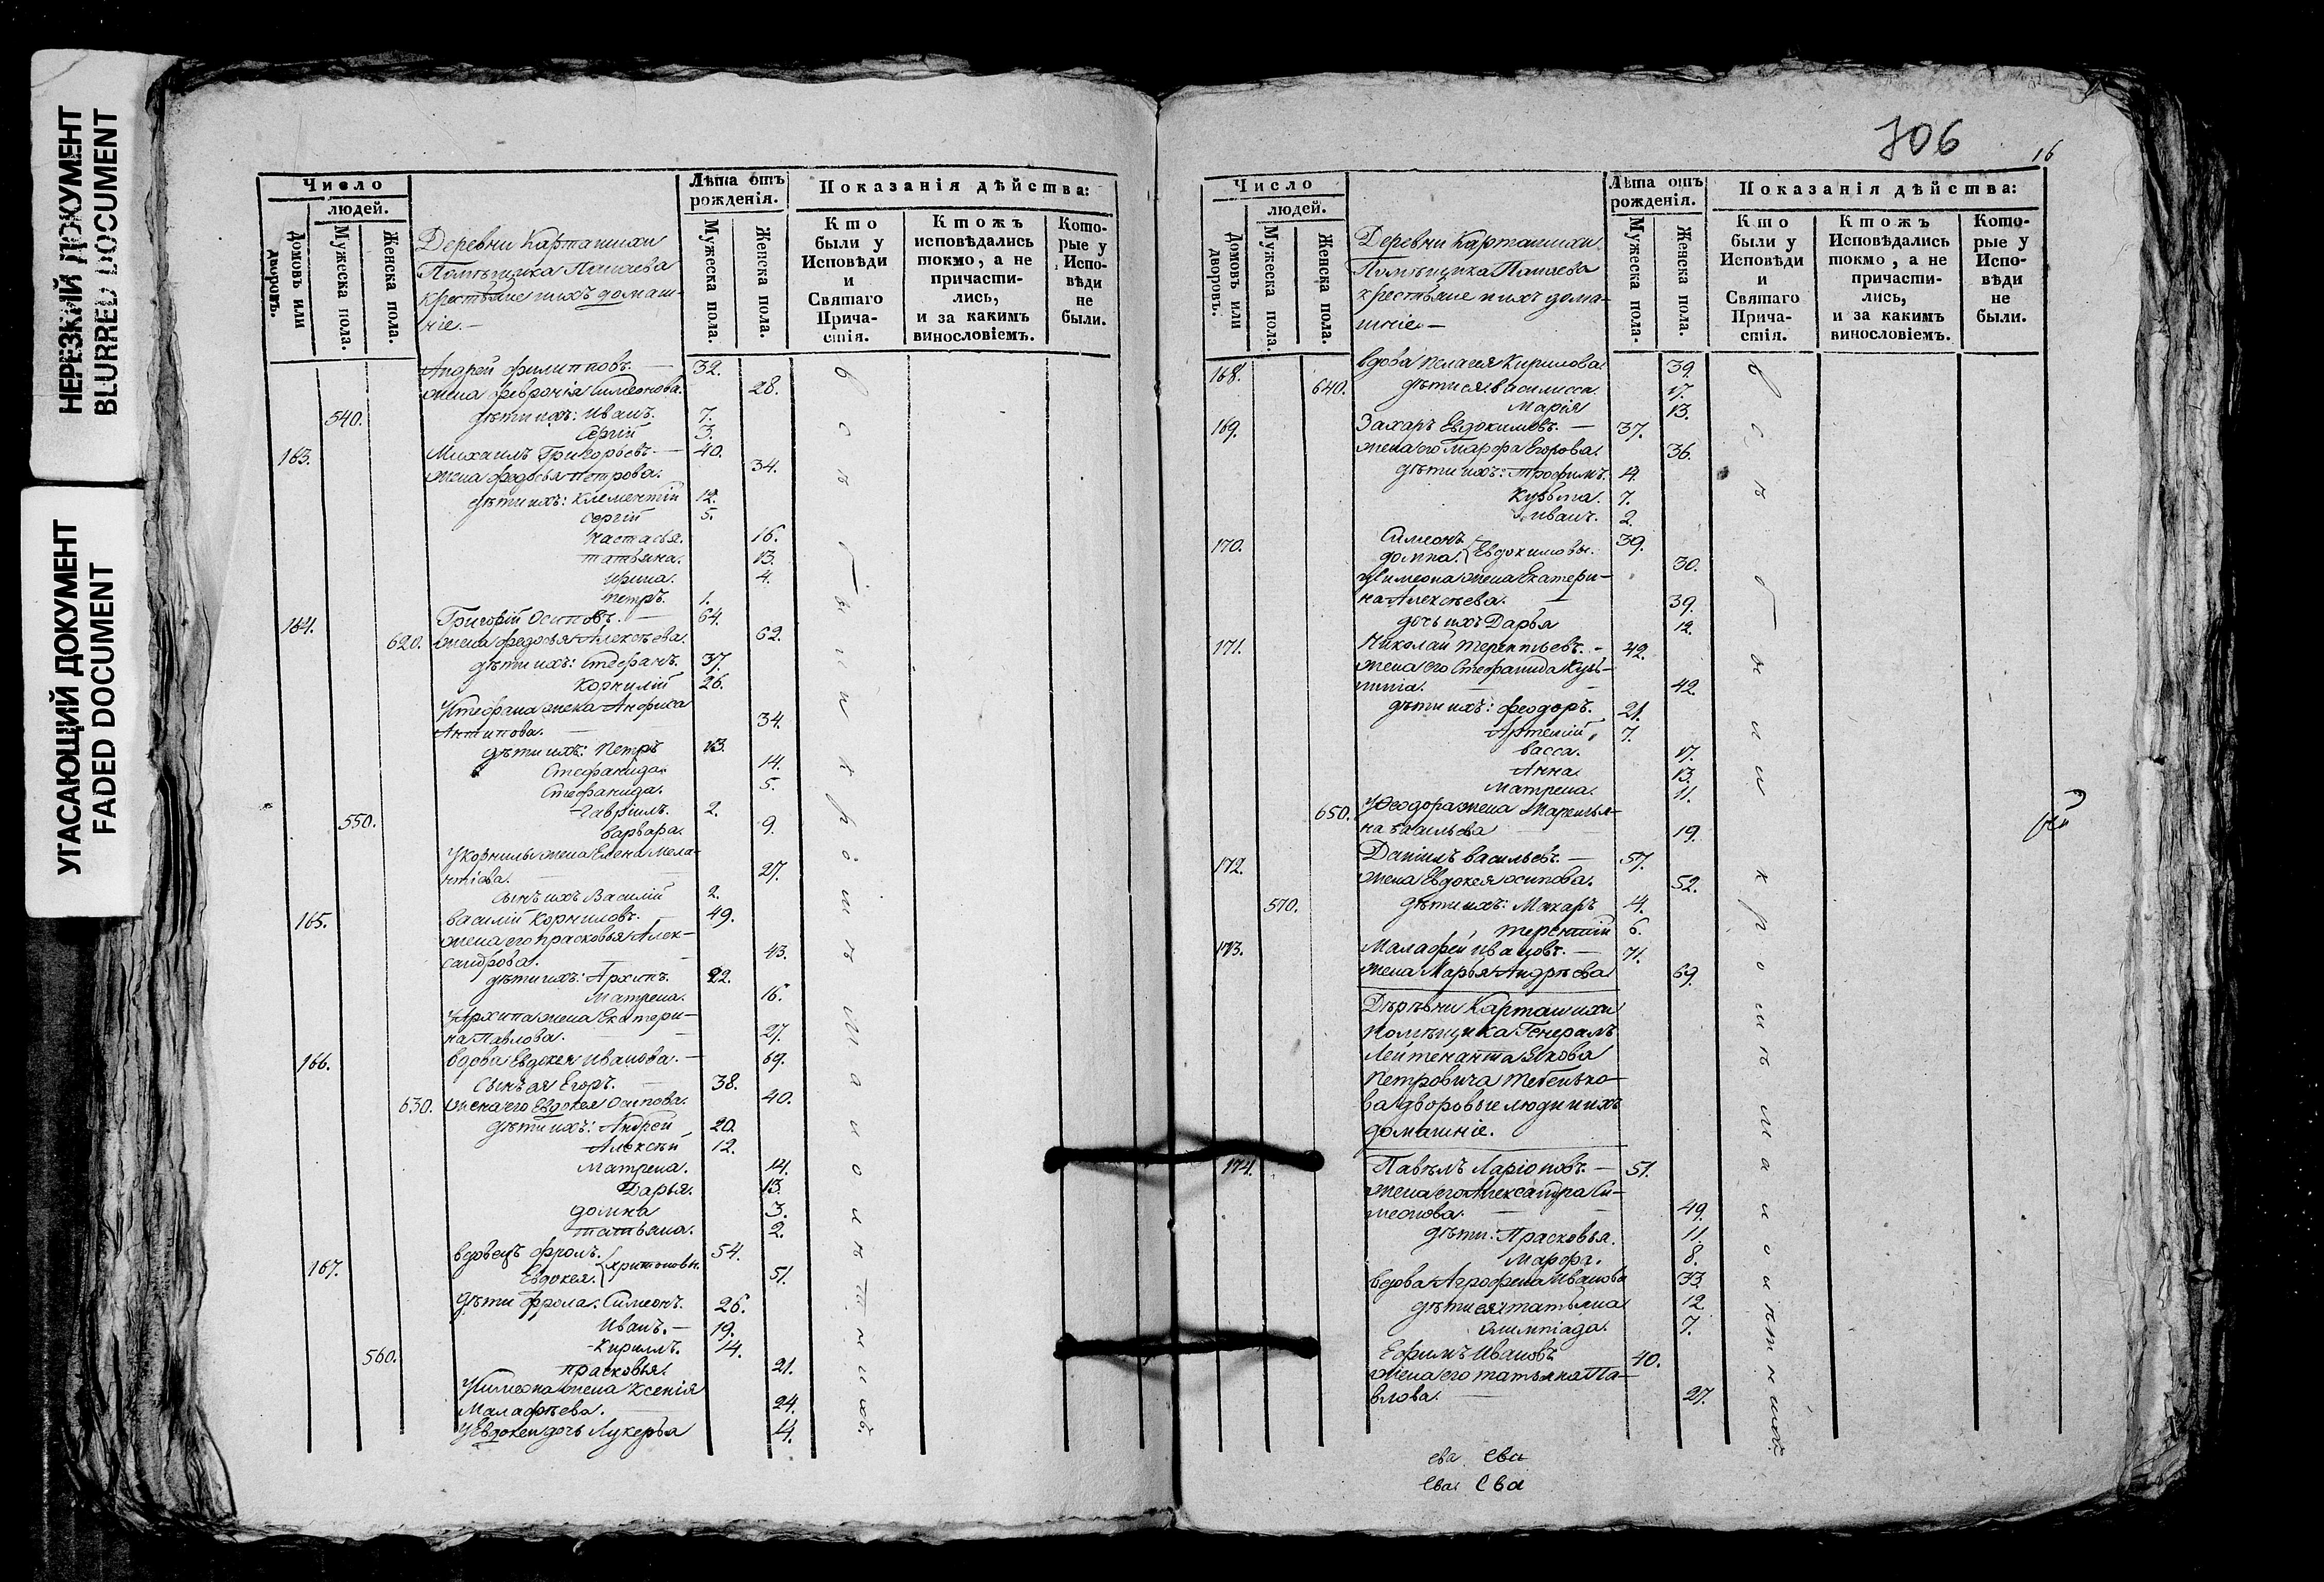 НЕРЕЗКИЙ ДОКУМЕНТ
BLURRED DOCUMENT
УГАСАЮЩИЙ ДОКУМЕНТ
FADED DOCUMENT
Число
людей.
Домовъ или дворовъ.
Мужеска пола.
Женска пола.
Деревни Карташихи
Помѣщика Панаева
крестьяне и ихъ домаш-
ніе.—
Лѣта отъ рожденія.
Мужеска пола.
Женска пола.
Показанія дѣйства:
Кто были у Исповѣди и Святаго Прича- стія.
Ктожъ исповѣдались токмо, а не причасти- лись, и за какимъ винословіемъ.
Кото- рые у Испо- вѣди не были.
Андрей Филипповъ. — 32.
жена Февронія Симеонова. 28.
540. дѣти ихъ: Иванъ. 7.
Сергій 3.
163. Михаилъ Григорьевъ. — 40.
жена Федосья Петрова. 34.
дѣти ихъ: Климентій 12.
Сергій 5.
Настасья. 16.
Татьяна. 13.
Ирина. 4.
Петръ. 1.
164. Григорій Осиповъ. — 64.
620. жена Федосья Алексѣева. 62.
дѣти ихъ: Стефанъ. 37.
Корнилій 26.
У Стефана жена Анфиса
Антипова. — 34.
дѣти ихъ: Петръ 13.
Стефанида. 14.
Стефанида. 5.
Гавріилъ. 2.
550. Варвара. 9.
У Корнилы жена Елена Мела-
нтіева. — 27.
сынъ ихъ Василій 2.
165. Василій Корниловъ. — 49.
жена его Прасковья Алек-
сандрова. — 43.
дѣти ихъ: Архипъ. 22.
Матрена. 16.
У Архипа жена Екатери-
на Павлова. — 27.
166. вдова Евдокея Иванова. — 69.
сынъ ея Егоръ. — 38.
630. жена его Евдокея Осипова. 40.
дѣти ихъ: Андрей 20.
Алексѣй 12.
Матрена. 14.
Дарья. 13.
Домна 3.
Татьяна. 2.
167. вдовецъ Фролъ. 54.
Евдокея. Харитоновы. 51.
Дѣти Фрола: Симеонъ. 26.
Иванъ. — 19.
560. Кирилъ. 14.
Прасковья. 21.
У Симеона жена Ксенія
Малафѣева. — 24.
У Евдокеи дочь Лукерья 4.
706
16
Число
людей.
Домовъ или дворовъ.
Мужеска пола.
Женска пола.
Деревни Карташихи
Помѣщика Панаева
крестьяне и ихъ дома-
шніе —
Лѣта отъ рожденія.
Мужеска пола.
Женска пола.
Показанія дѣйства:
Кто были у Исповѣди и Святаго Прича- стія.
Ктожъ Исповѣдались токмо, а не причасти- лись, и за какимъ винословіемъ.
Кото- рые у Испо- вѣди не были.
168. вдова Пелагея Кирилова 39.
640. дѣти ея: Василисса. 17.
Марія 13.
169. Захаръ Евдокимовъ. — 37.
жена его Марфа Егорова. 36.
дѣти ихъ: Трофимъ. 14.
Кузьма. 7.
Иванъ. 2.
170. Симеонъ 39.
Домна. Евдокимовы. 30.
У Симеона жена Екатери-
на Алексѣева. — 39.
дочь ихъ Дарья 12.
171. Николай Терентьевъ. - 42.
жена его Стефанида Кузь-
мина. — 42.
дѣти ихъ: Феодоръ. 21.
Артемій, 7.
Васса. 17.
Анна. 13.
Матрена. 11.
650. У Феодора жена Маремья-
на Васильева — 19.
172. Даніилъ Васильевъ. — 57.
жена Евдокея Осипова. 52.
570. дѣти ихъ: Макаръ 14.
Терентій 6.
173. Малафей Ивановъ. — 71.
жена Марья Андрѣева 69.
Дѣрѣвни Карташихи
помѣщика Генералъ
Лейтенанта Якова
Петровича
дворовые люди и ихъ
домашніе.
174. Павѣлъ Ларіоновъ. — 51.
жена его Александра Си-
меонова. — 49.
дѣти: Прасковья. 11.
Марфа. 8.
вдова Агрофена Иванова 33.
дѣти ея: Татьяна 12.
Олимпіада. 7.
Ефимъ Ивановъ 40.
жена его Татьяна Па-
влова. — 27.
ева ева
ева Ева